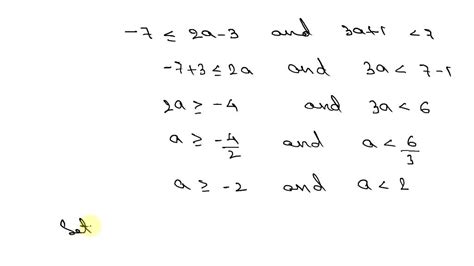 -7 ≤ 2a-3 and 3a+1 < 7
-7+3 ≤ 2a and 3a < 7-1
2a ≥ -4 and 3a < 6
a ≥ -4/2 and a < 6/3
a ≥ -2 and a < 2
Set